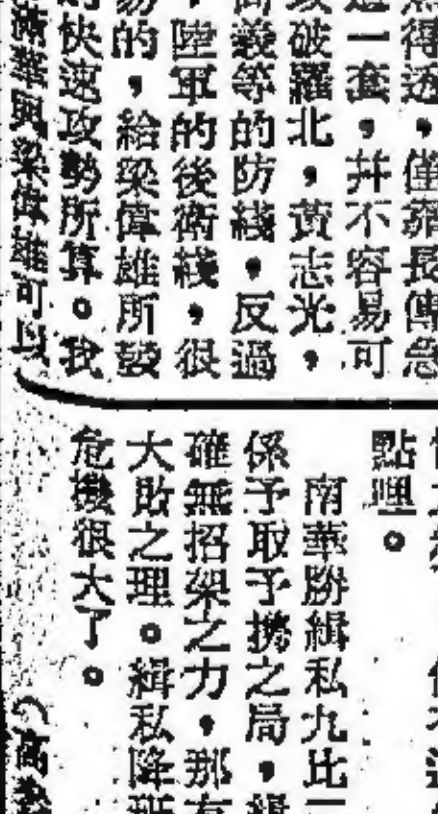 無得透，僅靠長傳急
這一套，并不容易可
攻破羅北，黃志光，
高義等的防綫。反過
，陸軍的後衛綫，很
易的，給梁偉雄所發
的快速攻勢所算。我
滿華與梁偉雄可以
點理。
南華勝緝私九比一
係予取予携之局，緝
確無招架之力，那有
大敗之理。緝私降班
危機很大了。